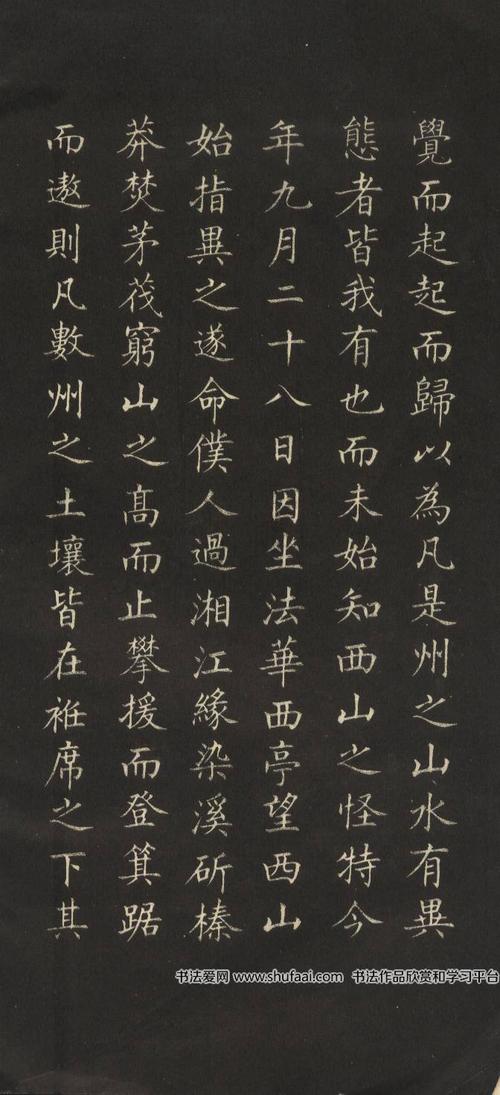 覺而起起而歸以為凡是州之山水有異
態者皆我有也而未始知西山之怪特今
年九月二十八日因坐法華西亭望西山
始指異之遂命僕人過湘江緣染溪斫榛
莽焚茅茷窮山之髙而止攀援而登箕踞
而遨則凡數州之土壤皆在袵席之下其
书法爱网 www.shufaai.com 书法作品欣赏和学习平台